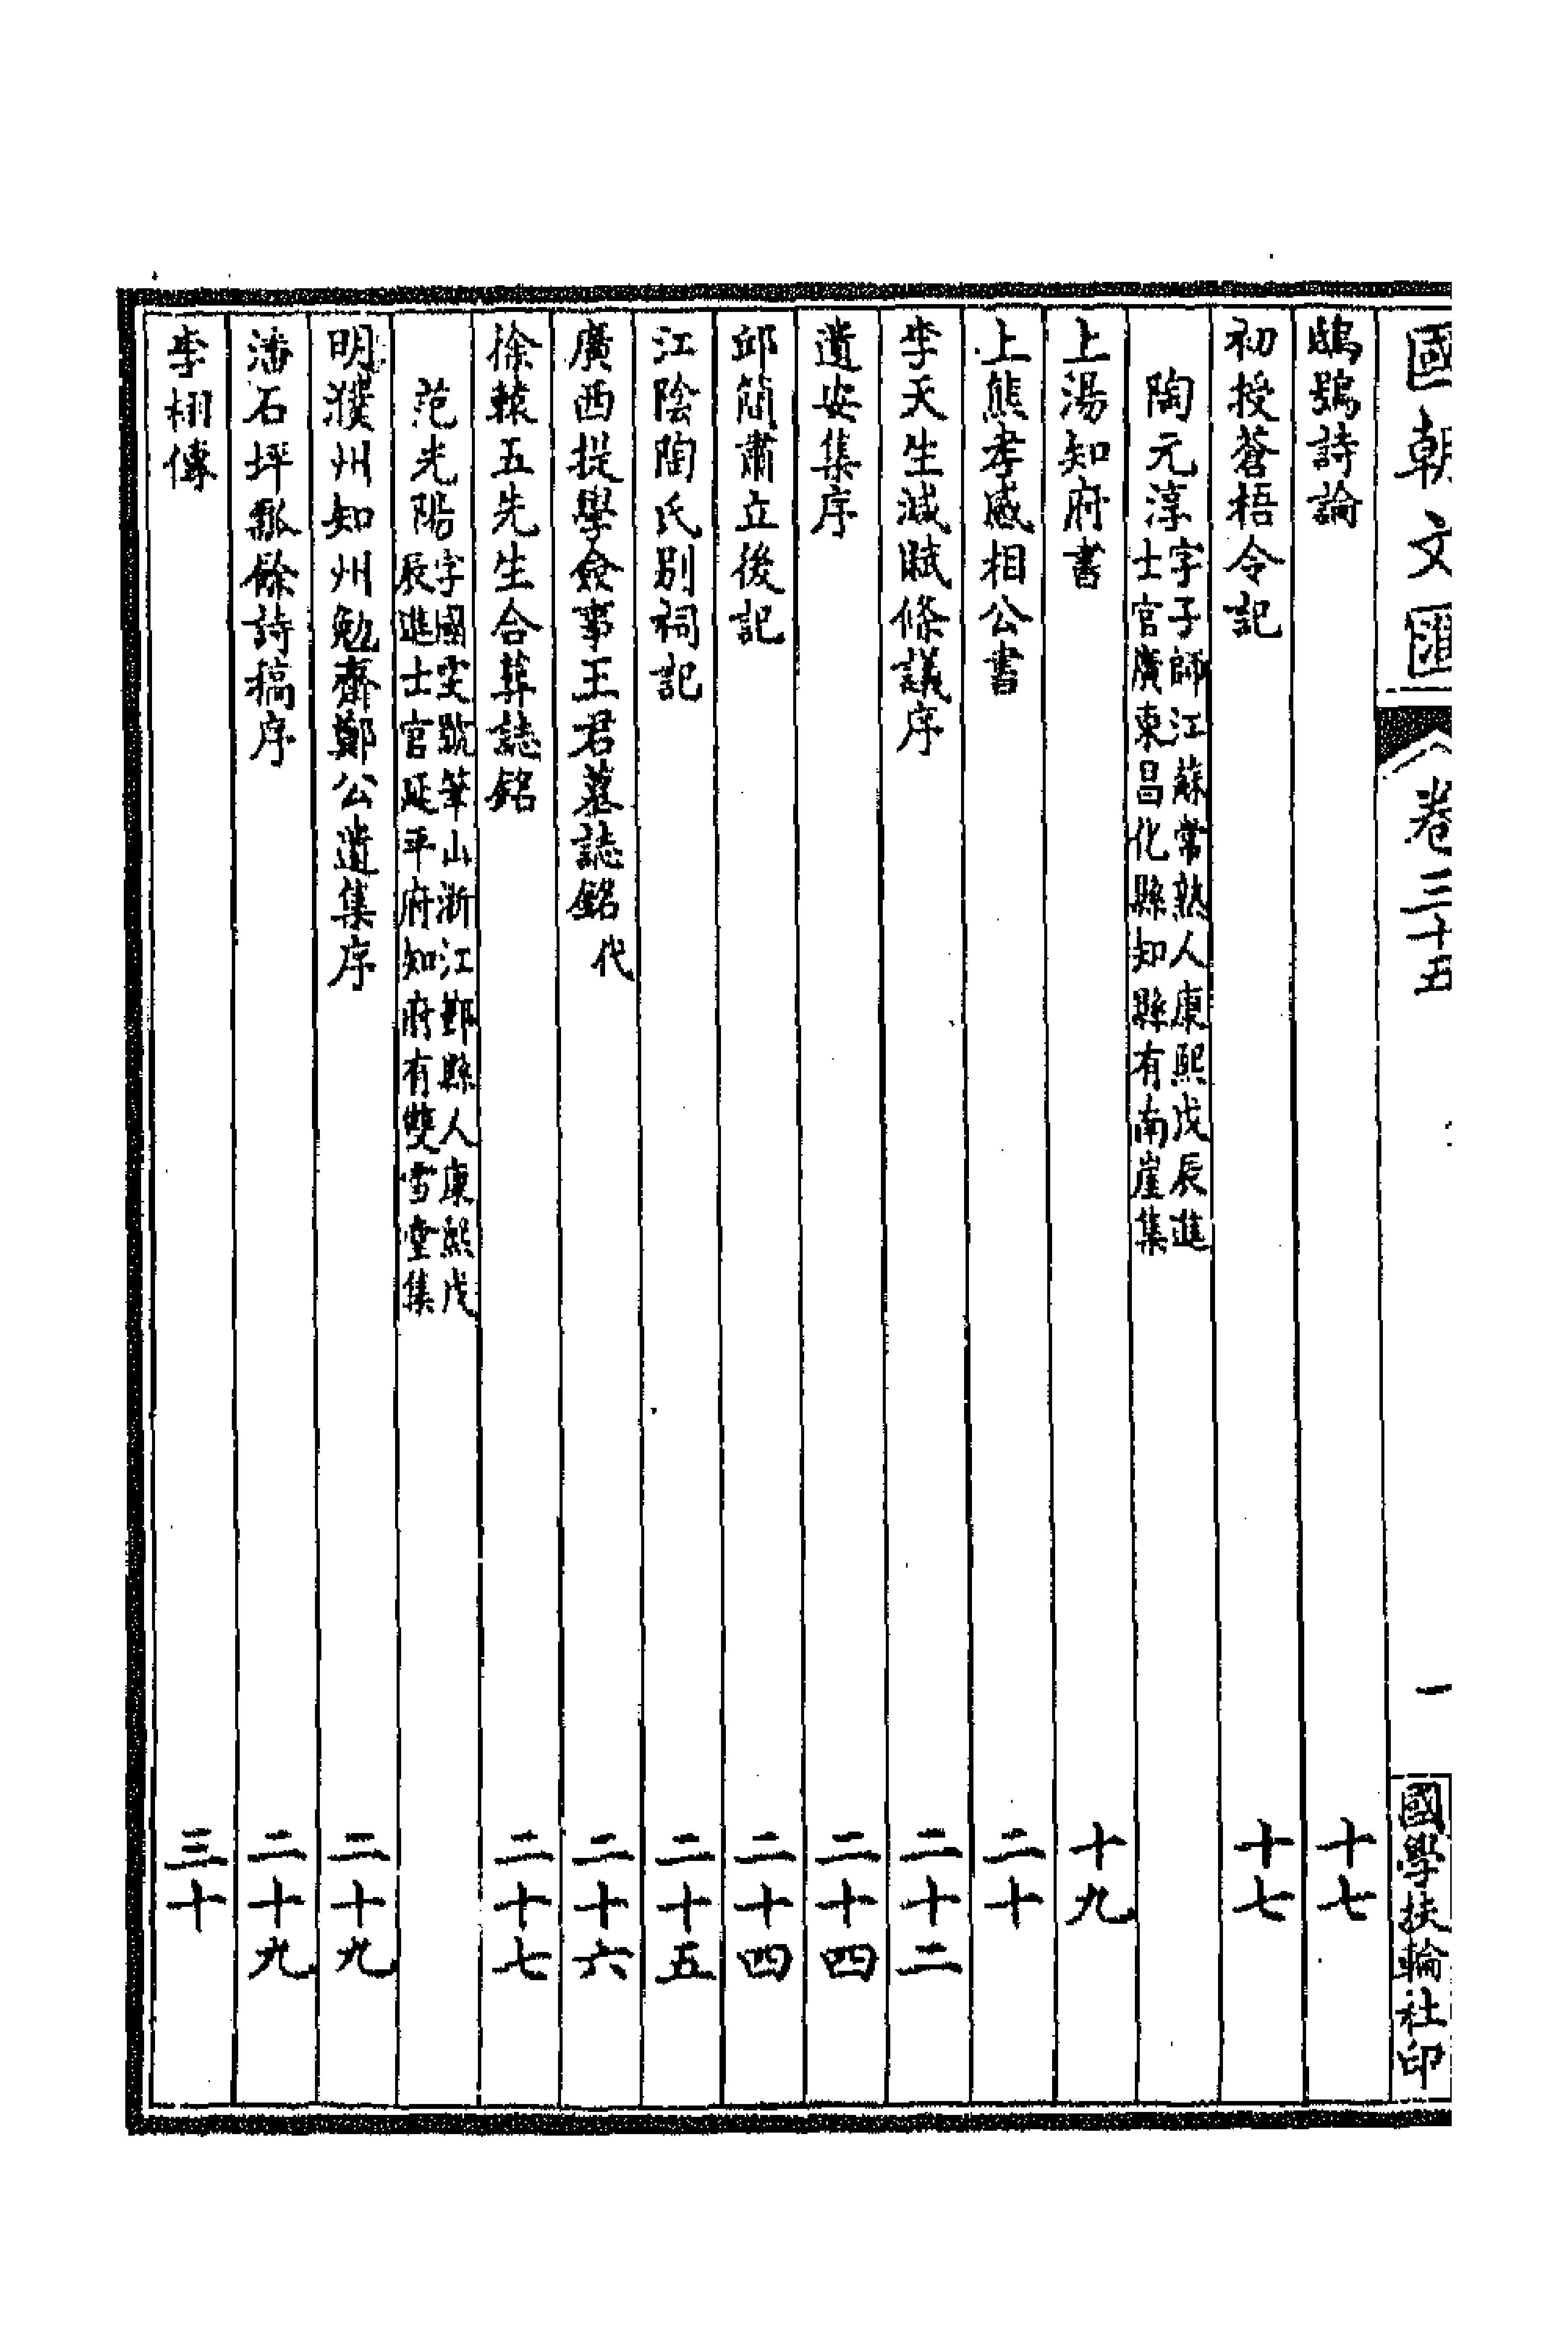 國朝文匯 卷三十五 一 國學扶輪社印
鴟鴞詩論 十七
初授蒼梧令記 十七
陶元淳 字子師江蘇常熟人康熙戊辰進
士官廣東昌化縣知縣有南崖集
上湯知府書 十九
上熊孝感相公書 二十
李天生減賦條議序 二十二
遺安集序 二十四
邱簡肅立後記 二十四
江陰陶氏別祠記 二十五
廣西提學僉事王君墓誌銘 代 二十六
徐轅五先生合葬誌銘 二十七
范光陽 字國雯號筆山浙江鄞縣人康熙戊
辰進士官延平府知府有雙雪堂集
明濮州知州勉齋鄭公遺集序 二十九
潘石坪瓢餘詩稿序 二十九
李栩傳 三十